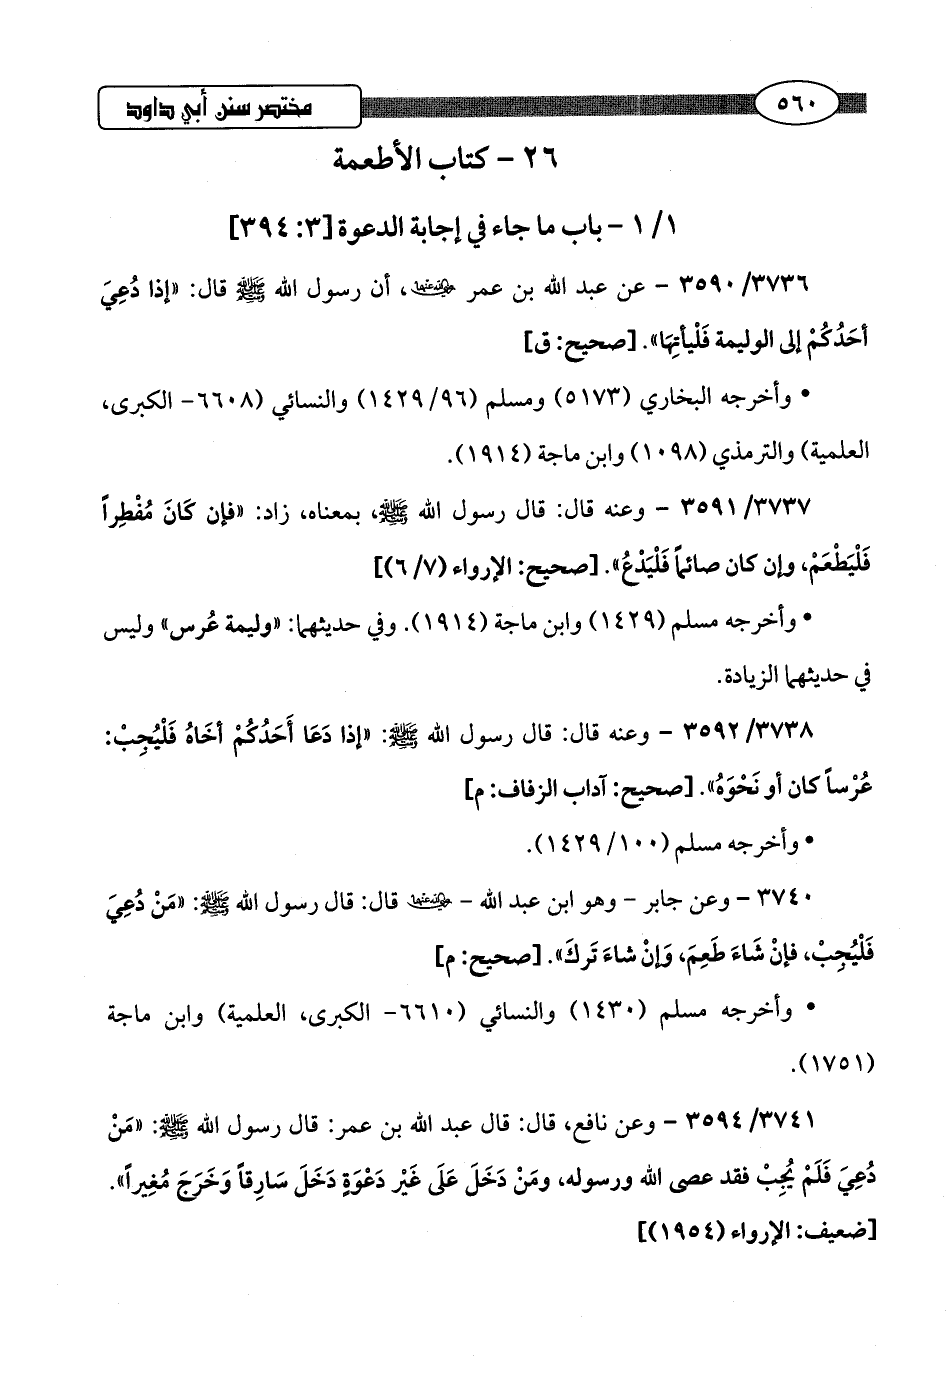 ٥٦٠
مختصر سنن أبي داود
٢٦ - كتاب الأطعمة
١/ ١ - باب ما جاء في إجابة الدعوة [٣: ٣٩٤]
٣٥٩٠/٣٧٣٦ - عن عبد الله بن عمر رضي الله عنهما، أن رسول الله ﷺ قال: «إذا دُعِيَ
أحَدُكُمْ إلى الوليمة فَلْيأتِهَا». [صحيح: ق]
• وأخرجه البخاري (٥١٧٣) ومسلم (١٤٢٩/٩٦) والنسائي (٦٦٠٨- الكبرى،
العلمية) والترمذي (١٠٩٨) وابن ماجة (١٩١٤).
٣٥٩١/٣٧٣٧ - وعنه قال: قال رسول الله ﷺ، بمعناه، زاد: «فإن كَانَ مُفْطِراً
فَلْيَطْعَمْ، وإن كان صائماً فَلْيَدْعُ». [صحيح: الإرواء (٦/٧)]
• وأخرجه مسلم (١٤٢٩) وابن ماجة (١٩١٤). وفي حديثهما: «وليمة عُرس» وليس
في حديثهما الزيادة.
٣٥٩٢/٣٧٣٨ - وعنه قال: قال رسول الله ﷺ: «إذا دَعَا أَحَدُكُمْ أخَاهُ فَلْيُجِبْ:
عُرْساً كان أو نَحْوَهُ». [صحيح: آداب الزفاف: م]
• وأخرجه مسلم (١٤٢٩/١٠٠).
٣٧٤٠ - وعن جابر - وهو ابن عبد الله - رضي الله عنهما قال: قال رسول الله ﷺ: «مَنْ دُعِيَ
فَلْيُجِبْ، فإنْ شَاءَ طَعِمَ، وَإنْ شاءَ تَركَ». [صحيح: م]
• وأخرجه مسلم (١٤٣٠) والنسائي (٦٦١٠- الكبرى، العلمية) وابن ماجة
(١٧٥١).
٣٥٩٤/٣٧٤١ - وعن نافع، قال: قال عبد الله بن عمر: قال رسول الله ﷺ: «مَنْ
دُعِيَ فَلَمْ يُجِبْ فقد عصى الله ورسوله، ومَنْ دَخَلَ عَلَى غَيْرِ دَعْوَةٍ دَخَلَ سَارِقاً وَخَرَجَ مُغِيراً».
[ضعيف: الإرواء (١٩٥٤)]